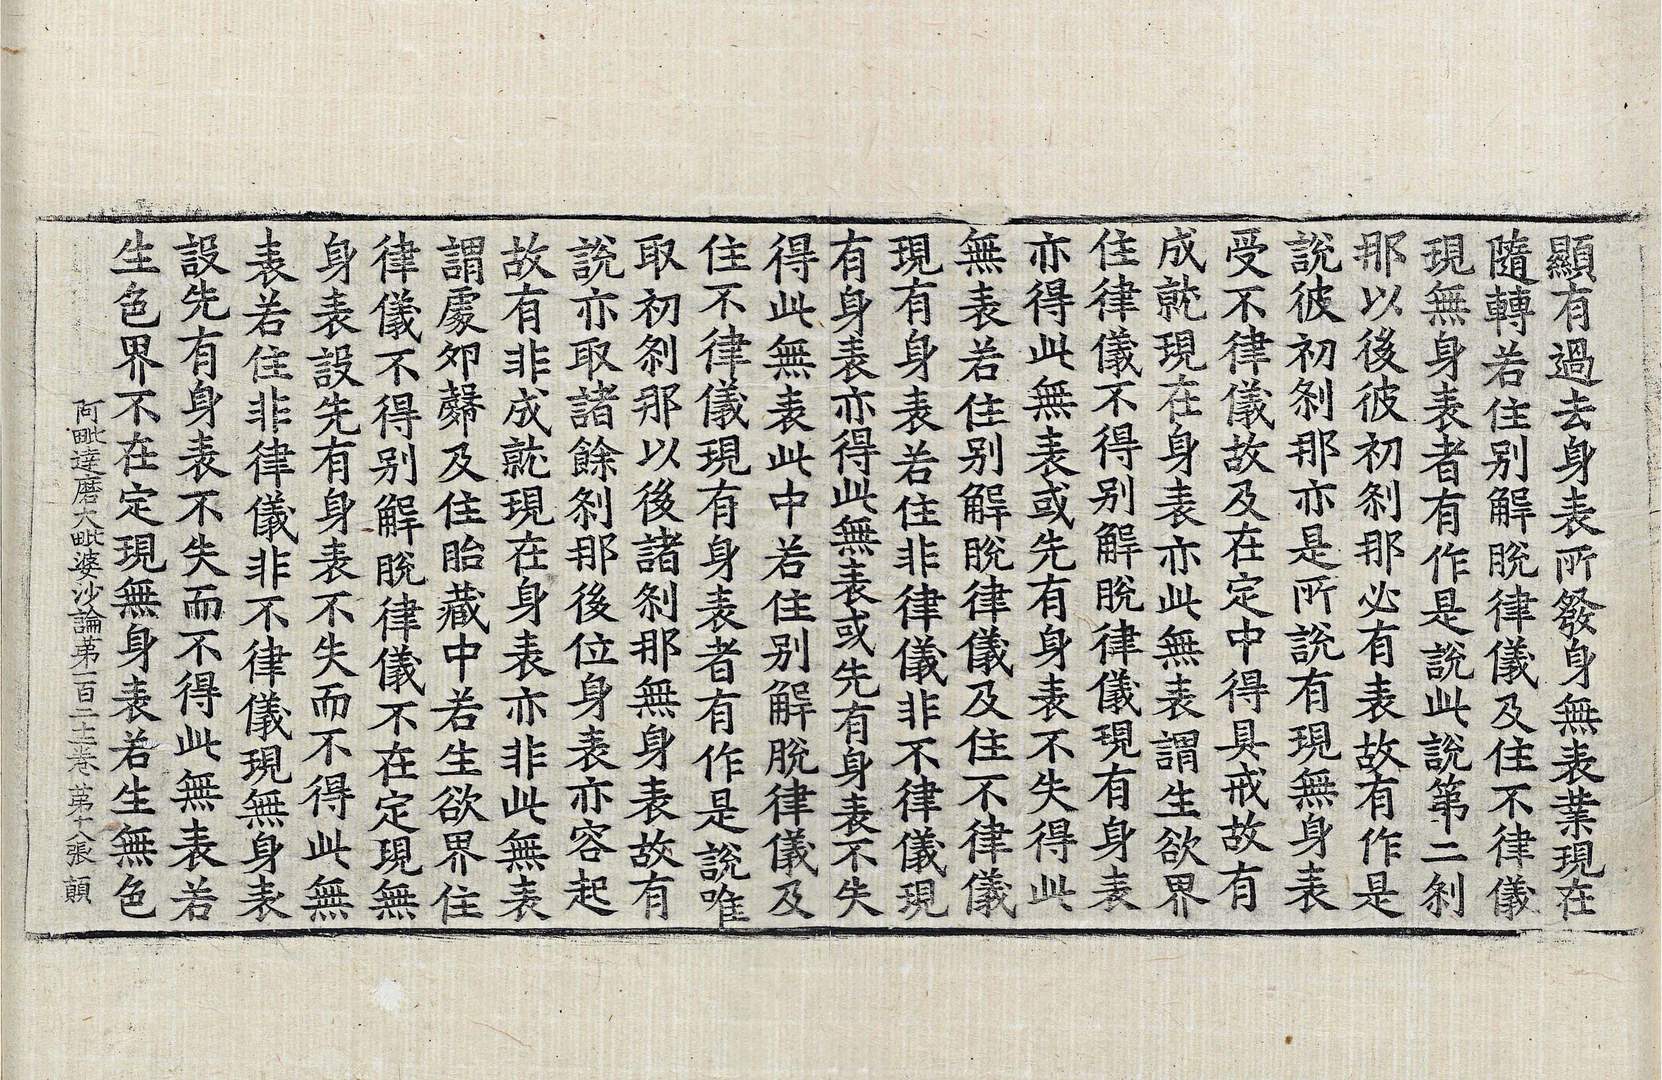 顯有過去身表所發身無表業現在
隨轉若住別解脫律儀及住不律儀
現無身表者有作是說此說第二刹
那以後彼初刹那必有表故有作是
說彼初刹那亦是所說有現無身表
受不律儀故及在定中得具戒故有
成就現在身表亦此無表謂生欲界
住律儀不得別解脫律儀現有身表
亦得此無表或先有身表不失得此
無表若住別解脫律儀及住不律儀
現有身表若住非律儀非不律儀現
有身表亦得此無表或先有身表不失
得此無表此中若住別解脫律儀及
住不律儀現有身表者有作是說唯
取初刹那以後諸刹那無身表故有
說亦取諸餘刹那後位身表亦容起
故有非成就現在身表亦非此無表
謂處卵㲉及住胎藏中若生欲界住
律儀不得別解脫律儀不在定現無
身表設先有身表不失而不得此無
表若住非律儀非不律儀現無身表
設先有身表不失而不得此無表若
生色界不在定現無身表若生無色
阿毗達磨大毗婆沙論第一百二十二卷 第十八張 顛